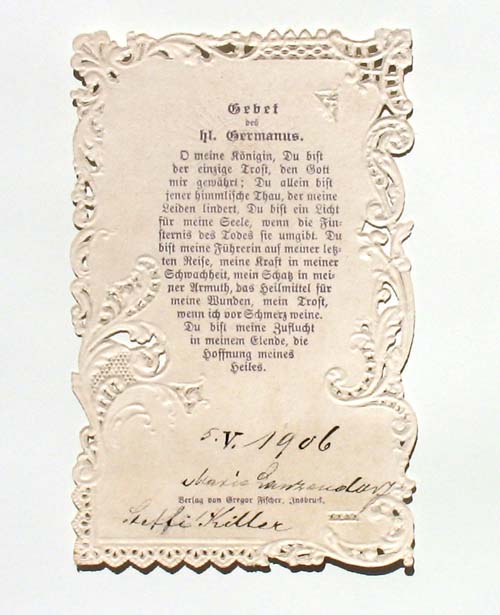 Gebet
des
hl. Germanus.
O meine Königin, Du bist
der einzige Trost, den Gott
mir gewährt; Du allein bist
jener himmlische Thau, der meine
Leiden lindert. Du bist ein Licht
für meine Seele, wenn die Fin-
sternis des Todes sie umgibt. Du
bist meine Führerin auf meiner letz-
ten Reise, meine Kraft in meiner
Schwachheit, mein Schatz in mei-
ner Armuth, das Heilmittel für
meine Wunden, mein Trost,
wenn ich vor Schmerz weine.
Du bist meine Zuflucht
in meinem Elende, die
Hoffnung meines
Heiles.
5. V. 1906
Marie Lanzendorf
Verlag von Gregor Fischer, Innsbruck.
Steffi Killer